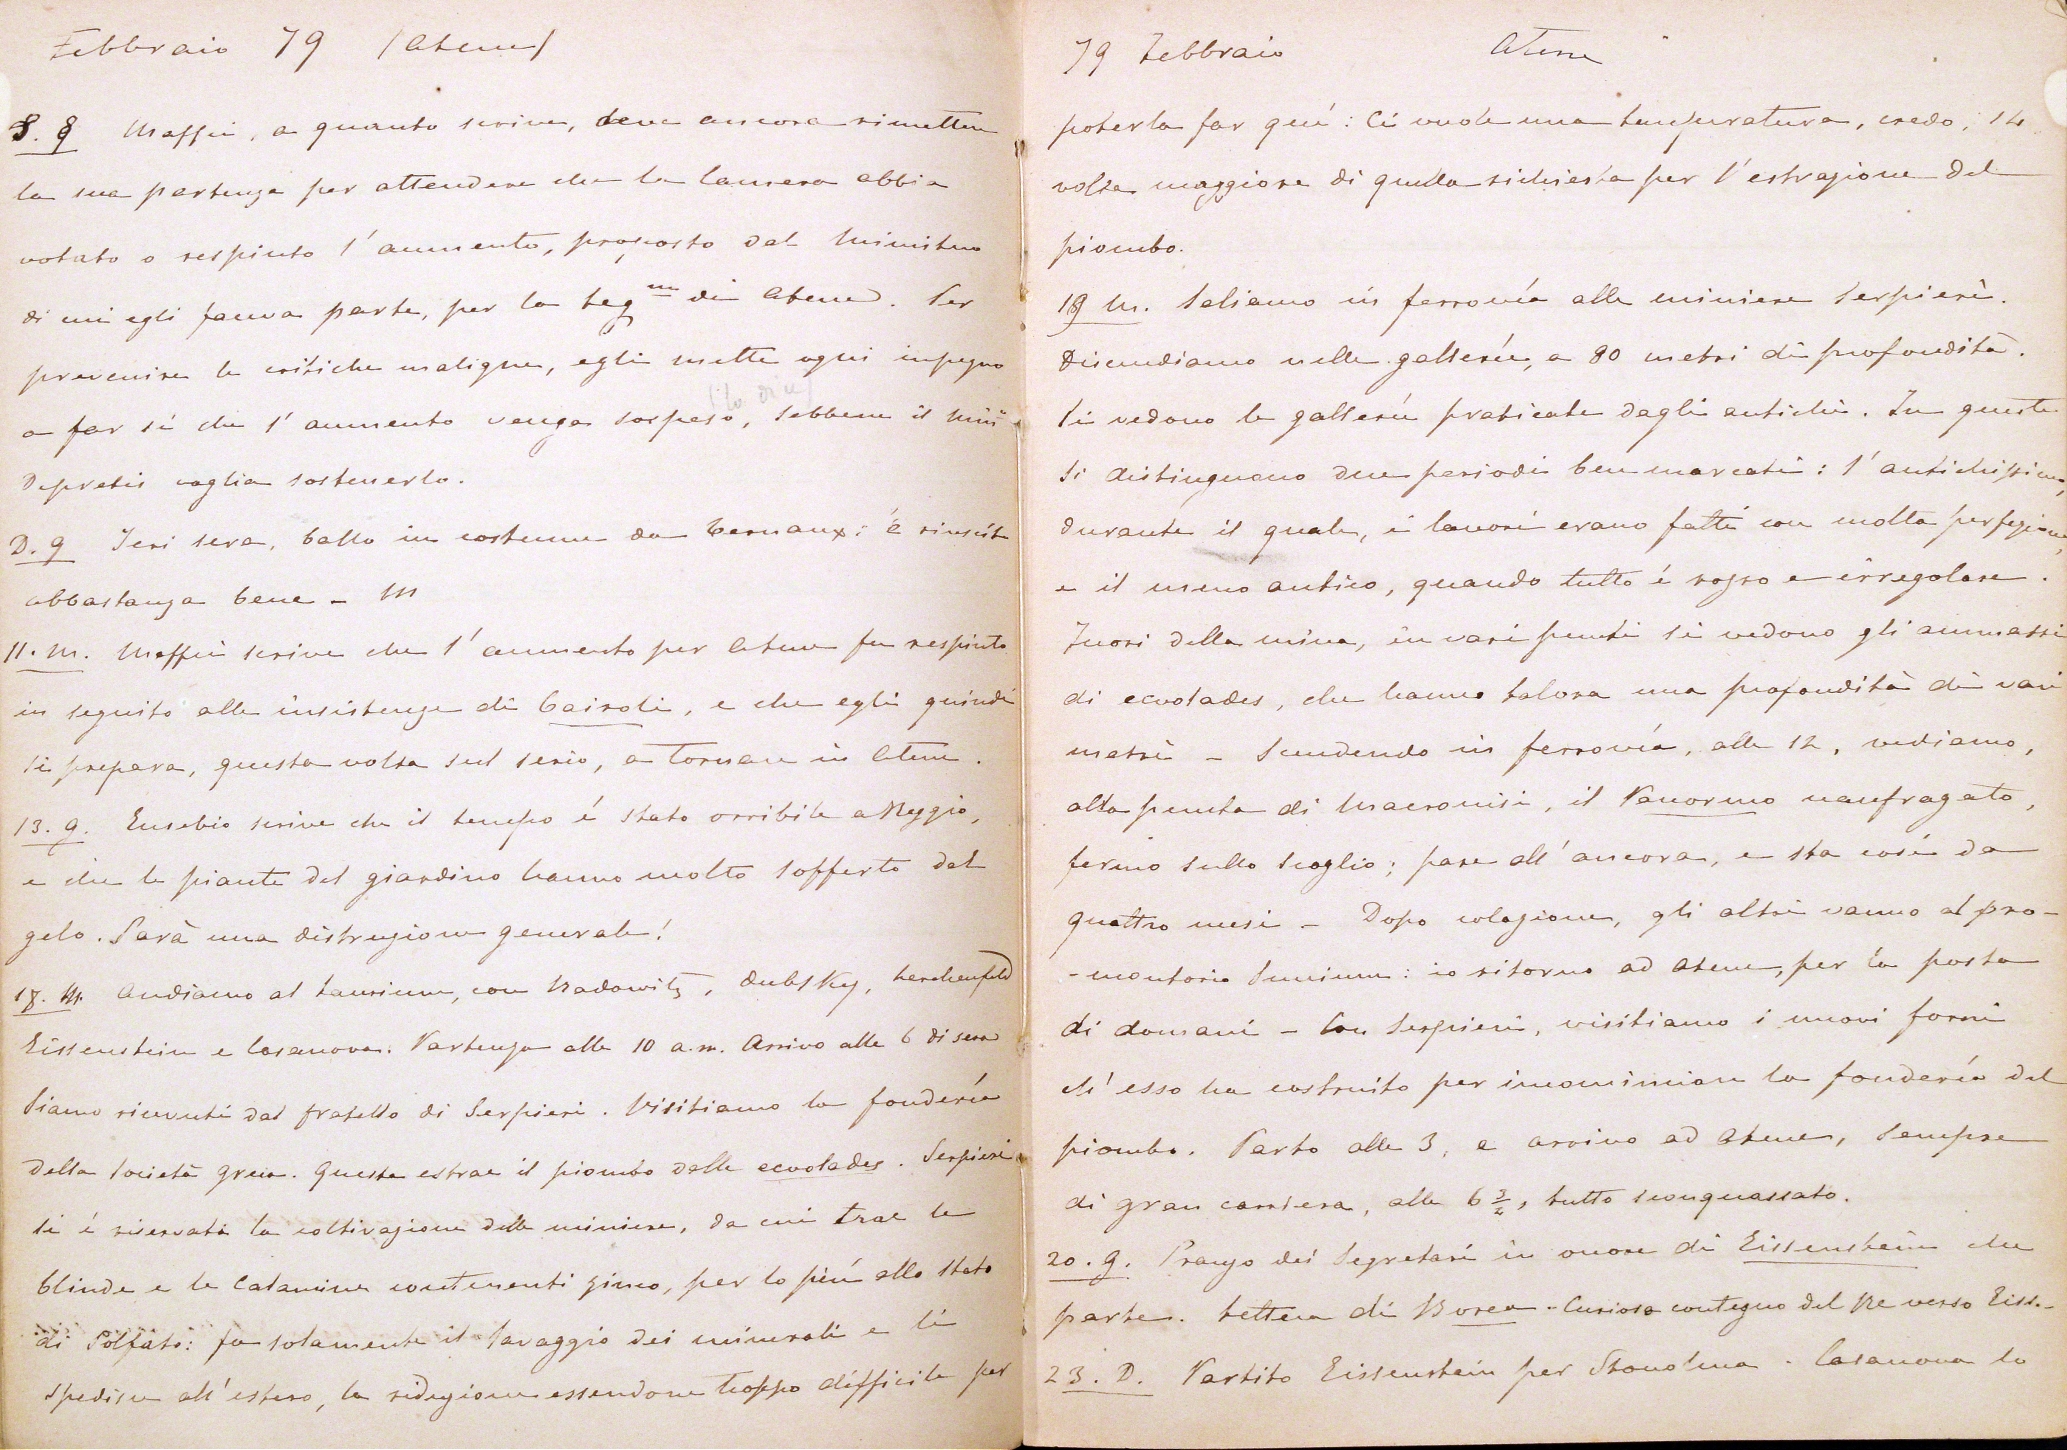 Febbraio 79 (Atene)
S. 8 Maffei, a quanto scrive, deve ancora rimettere
la sua partenza per attendere che la Camera abbia
votato o respinto l'aumento, proposto dal Ministero
di cui egli faceva parte, per la Leg.ne di Atene. Per
prevenire le critiche maligne, egli mette ogni impegno
(lo dice)
a far sì che l'aumento venga sospeso, sebbene il Min
Depretis voglia sostenerlo.
D. 9 Ieri sera, ballo in costume da Bernaux: è riuscito
abbastanza bene - M
11. M. Maffei scrive che l'aumento per Atene fu respinto
in seguito alle insistenze di Cairoli, e che egli quindi
si prepara, questa volta sul serio, a tornare in Atene.
13. G. Eusebio scrive che il tempo é stato orribile a Reggio,
e che le piante del giardino hanno molto sofferto dal
gelo. Sarà una distruzione generale!
18. M. Andiamo al Laurium, con Radowitz, Dubsky, Lerchenfeld
Eissenstein e Casanova. Partenza alle 10 a.m. Arrivo alle 6 di sera
Siamo ricevuti dal fratello di Serpieri. Visitiamo la fondería
della Società greca. Questa estrae il piombo dalle ecvolades. Serpieri
si é riservata la coltivazione delle miniere, da cui trae le
blinde e le Calamine contenenti zinco, per lo più allo stato
di Solfato: fa solamente il lavaggio dei minerali e li
spedisce all'estero, la riduzione essendone troppo difficile per
79 Febbraio Atene
poterla far quí: Ci vuole una temperatura, credo, 14
volte maggiore di quella richiesta per l'estrazione del
piombo.
19 M. Saliamo in ferrovía alle miniere Serpieri.
Discendiamo nelle galleríe, a 80 metri di profondità.
Si vedono le gallerie praticate dagli antichi. In queste
si distinguono due periodi ben marcati: l'antichissimo,
durante il quale, i lavori erano fatti con molta perfezione,
e il meno antico, quando tutto é rozzo e irregolare.
Fuori della mina, in vari punti si vedono gli ammassi
di ecvolades, che hanno talora una profondità di vari
metri - Scendendo in ferrovía, alle 12, vediamo,
alla punta di Macronisi, il Panormo naufragato,
fermo sullo scoglio; pare all'ancora, e sta così da
quattro mesi - Dopo colazione, gli altri vanno al pro-
-montorio Sunium: io ritorno ad Atene, per la posta
di domani - Con Serpieri, visitiamo i nuovi forni
ch'esso ha costruito per incominciare la fondería del
piombo. Parto alle 3, e arrivo ad Atene, sempre
di gran carriera, alle 6 3/4, tutto sconquassato.
20. G. Pranzo dei Segretari in onore di Eissenstein che
parte. Lettera di Borea - Curioso contegno del Re verso Eiss.-
23. D. Partito Eissenstein per Stocolma. Casanova lo